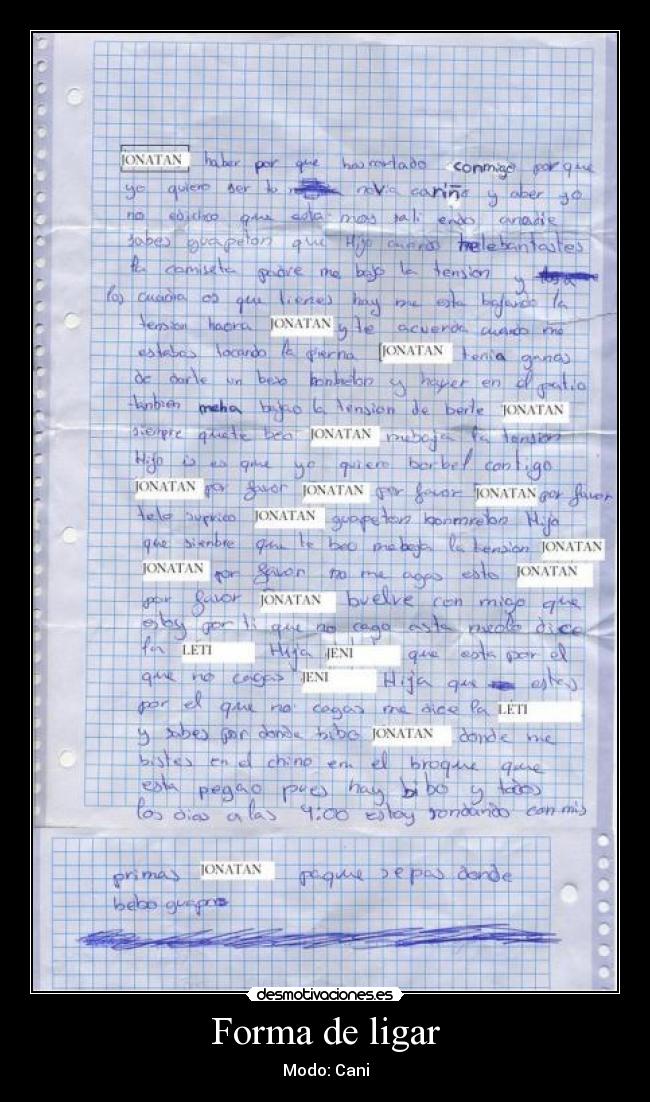 JONATAN haber por que has cortado conmigo porque
yo quiero ser tu novia cariño y aber yo
no edicho que esta mos sali endo anadie
sabes guapeton que Hijo cuando telebantastes
la camiseta padre me bajo la tension y
los cuadra os que tienes hay me esta bajando la
tension haora JONATAN y te acuerda cuando me
estabas tocando la pierna JONATAN tenia ganas
de darte un beso bonbeton y hayer en el patio
tanbien meha bajao la tension de berte JONATAN
sienpre quete beo JONATAN mebaja la tension
Hijo is es que yo quiero borbel contigo
JONATAN por favor JONATAN por favor JONATAN por favor
telo suprico JONATAN guapeton Hijo
que sienbre que te beo mebaja la tension JONATAN
JONATAN por favor no me agas esto JONATAN
por favor JONATAN buelve con migo que
estoy por ti que no cago asta melo dice
la LETI Hija JENI que esta por el
que no cagas JENI Hija que estas
por el que no cagas me dice la LETI
y sabes por donde bibo JONATAN donde me
bistes en el chino en el broque que
esta pegao pues hay bibo y todos
los dias a las 4:00 estoy rondando con mis
primas JONATAN paque sepas donde
bebo guapo
desmotivaciones.es
Forma de ligar
Modo: Cani